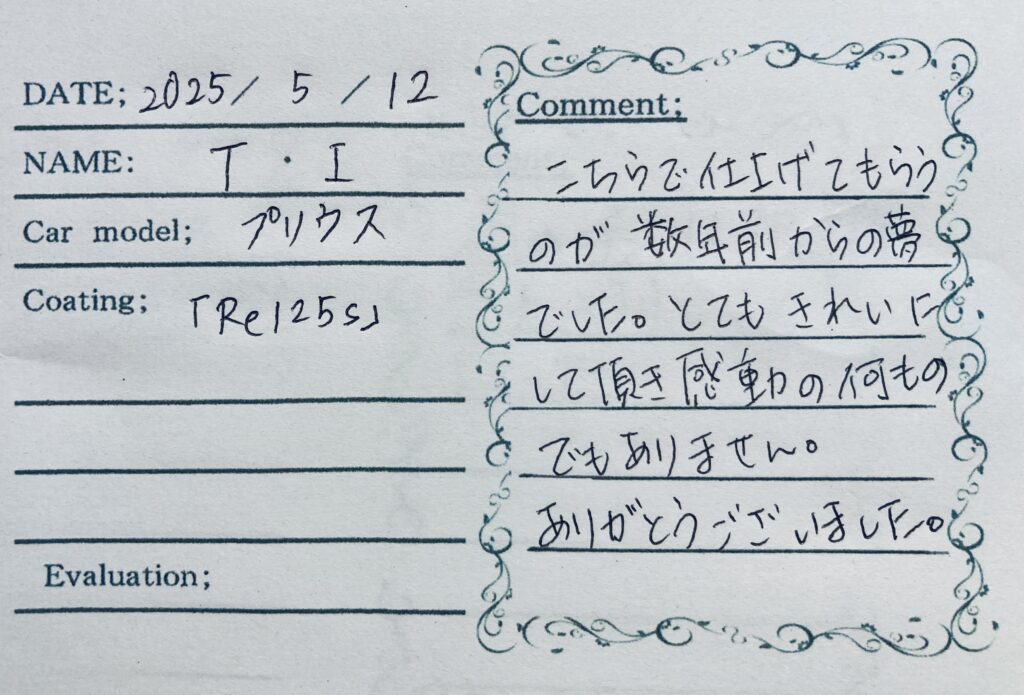 DATE; 2025/ 5 /12
NAME: T・I
Car model; プリウス
Coating; 「Re125s」
Evaluation;
Comment;
こちらで仕上げてもらう
のが数年前からの夢
でした。とてもきれいに
して頂き感動の何もの
でもありません。
ありがとうございました。